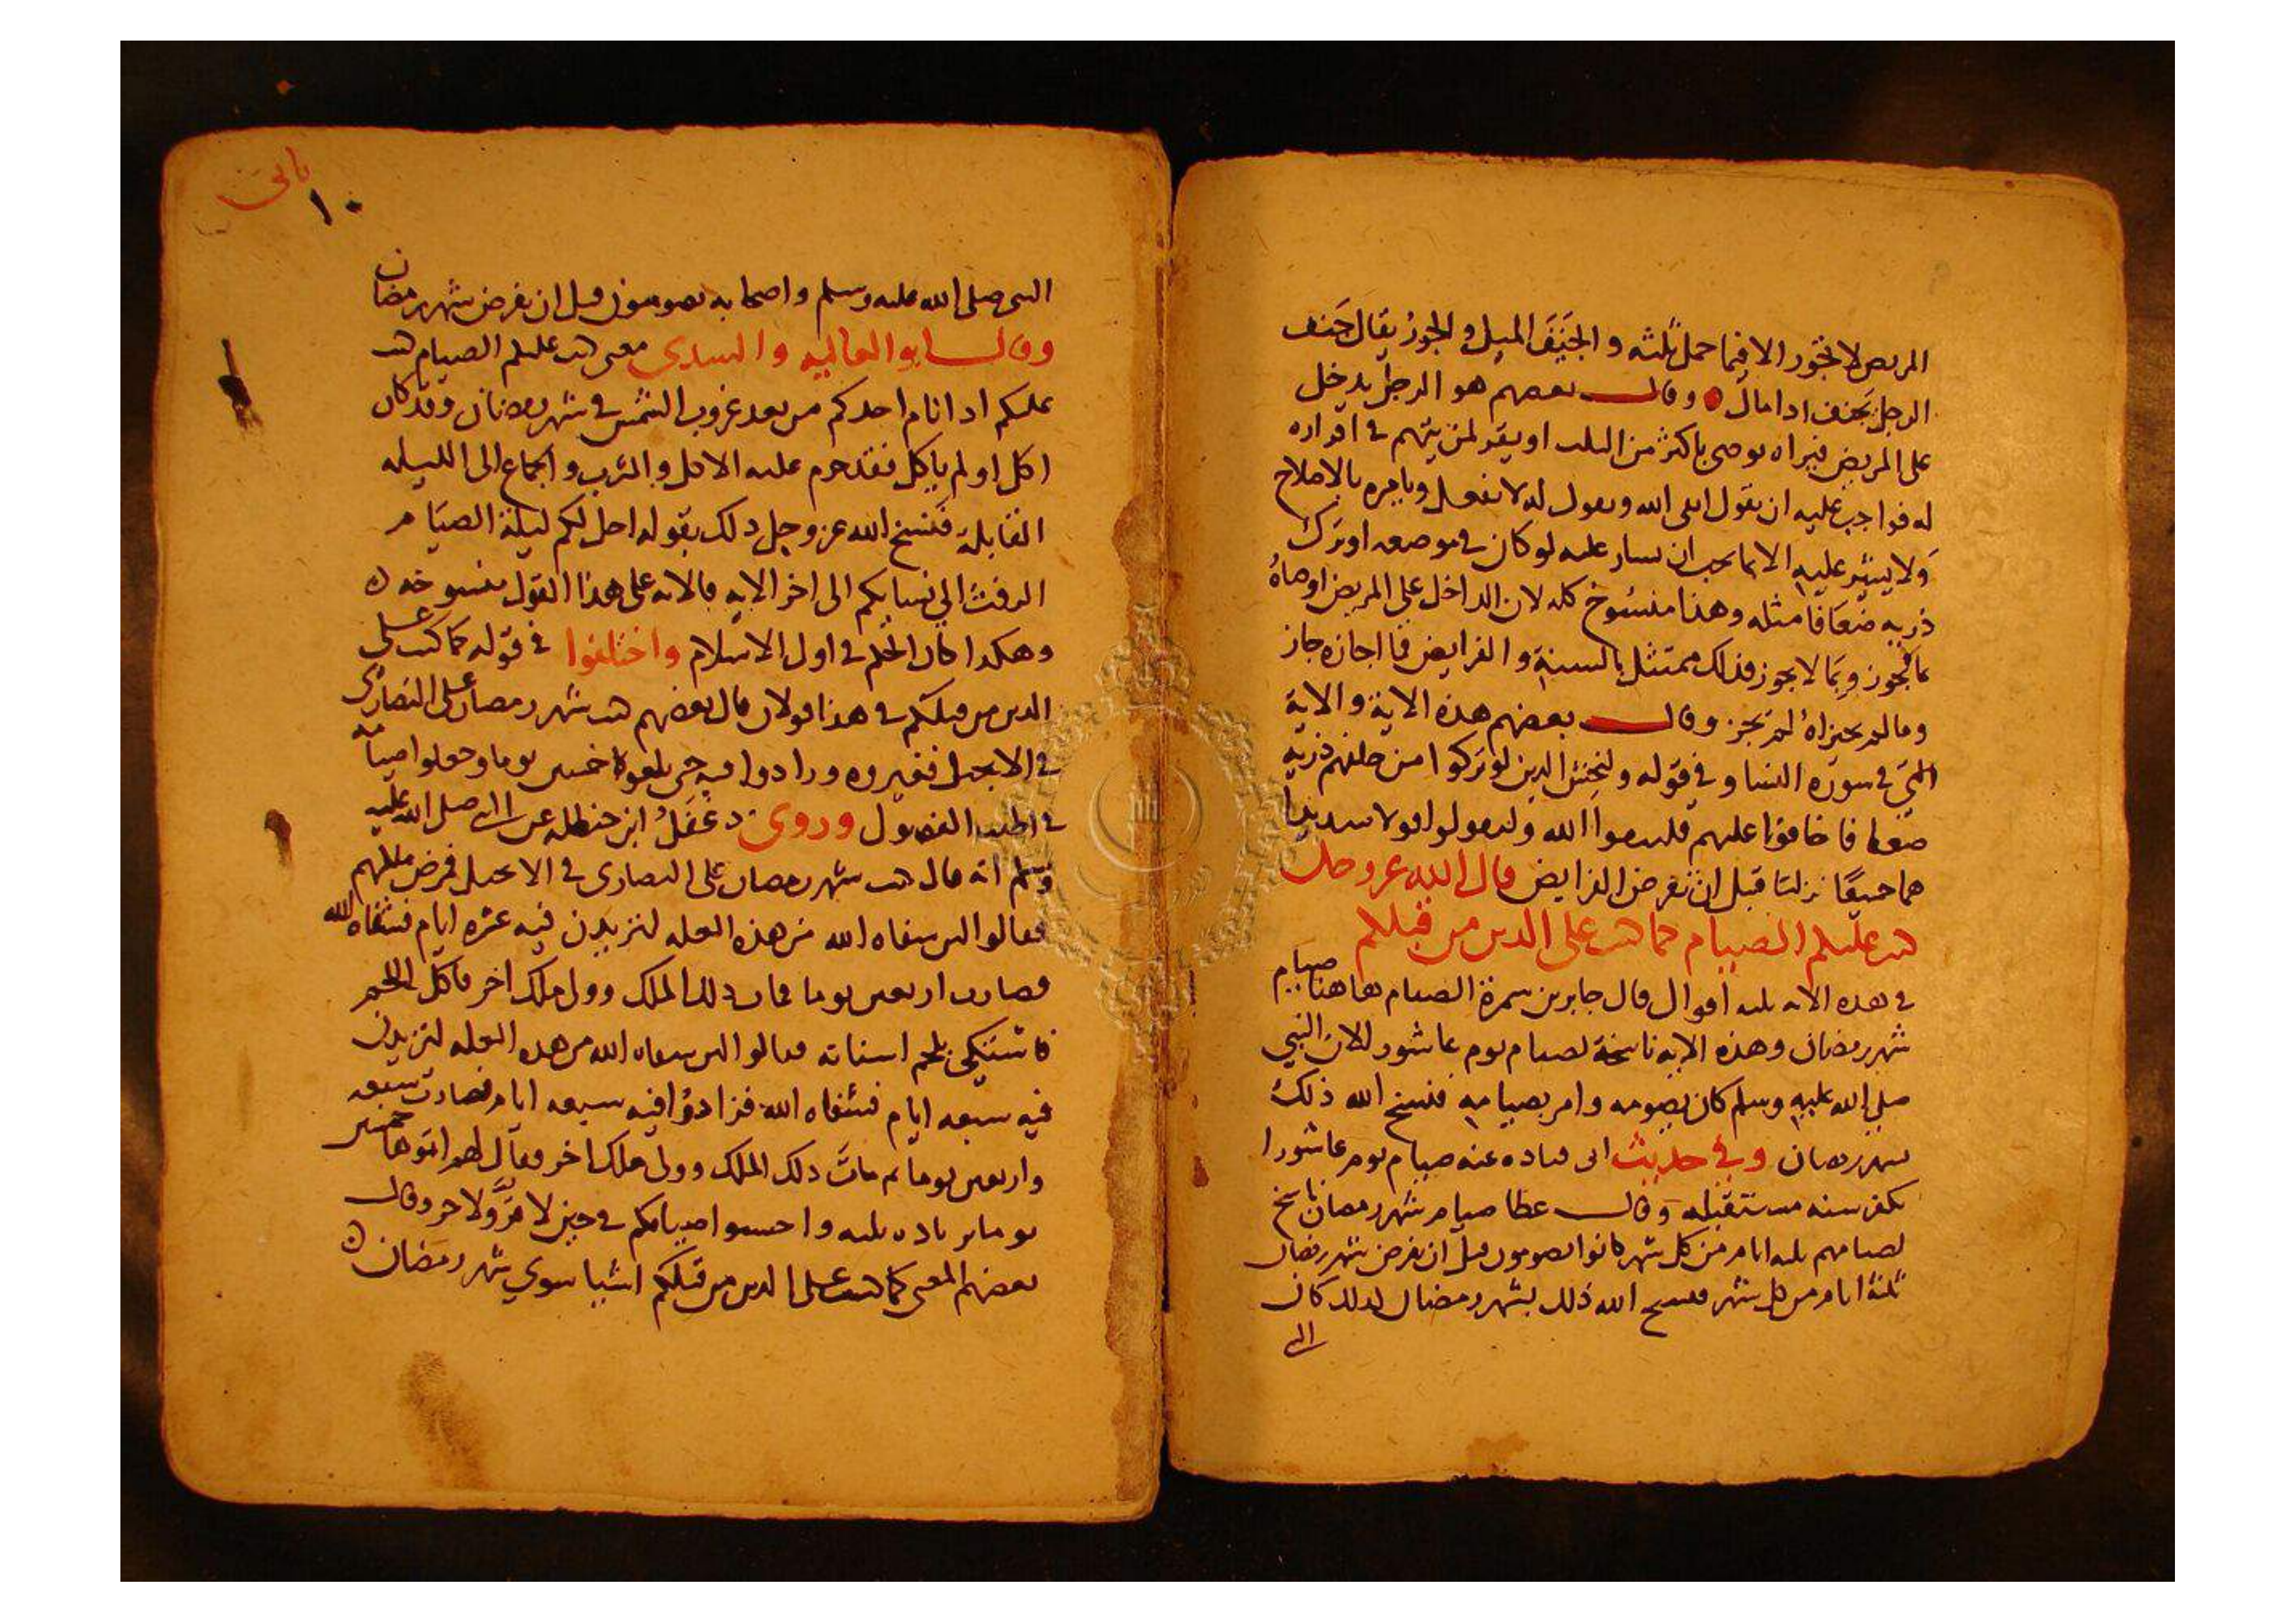 المريض لا تجوز الا فيما حمل ثلثه والجَنَفَ الميل والجورُ يقال جَنف
الرجل يَجنف ادا مال وقال بعضهم هو الرجل يدخل
على المريض فيراه يوصى باكثر من الثلث او يقر لمن يتهم في اقراره
له فواجب عليه ان يقول اتقى الله ويقول له لا تفعل ويامره بالاصلاح
وَلا يشير عليه الا بما يجب ان يشار عليه لو كان في موضعه او ترك
ذريه ضعَافا مثله وهذا منسُوخ كله لان الداخل على المريض اوصاهُ
بما يجوز وبما لا يجوز فذلك ممتثل بالسنة والفرايض فما اجازه جاز
وما لم يجيزاهُ لم يَجز وقال بعضهم هذه الاية والاية
التي في سورة النسا وفي قوله وليخش الدين لو تركوا من خلفهم ذريه
ضعافا خافوا عليهم فليتقوا الله وليقولوا قولا سديدا
هما جميعًا نزلتا قبل ان تفرض الفرايض قال الله عز وجل
كتب عليكم الصيام كما كتب على الدين من قبلكم
في هذه الايه ثلثه اقوال قال جابر بن سمرة الصيام هاهنا صيام
شهر رمضان وهذه الايه ناسخة لصيام يوم عاشورا لان النبي
صلى الله عليه وسلم كان يصومه وامر بصيامه فنسخ الله ذلك
بشهر رمضان وفي حديث ابى قتاده عنه صيام يوم عاشورا
يكفر سنه مستقبله وقال عطا صيام شهر رمضان ناسخ
لصيامهم ثلثه ايام من كل شهر كانوا يصومون قبل ان يفرض شهر رمضان
ثلثة ايام من كل شهر فنسخ الله ذلك بشهر رمضان كذلك كان
النبى
ثانى
١٠
النبى صلى الله عليه وسلم واصحابه يصومون قبل ان يفرض شهر رمضان
وقال ابو العاليه والسدى معنى كتب عليكم الصيام كتب
عليكم ادا نام احدكم من بعد غروب الشمس في شهر رمضان وقد كان
اكل او لم ياكل فقد حرم عليه الاكل والشرب والجماع الى الليله
القابلة فَنسخ الله عز وجل دلك بقوله احل لكم ليلة الصيَام
الرفث الى نسايكم الى اخر الايه فالايه على هذا القول منسوخه
وهكدا كان الحكم في اول الاسلام واختلفوا في قوله كما كتب على
الدين من قبلكم في هذا قولان قال بعضهم كتب شهر رمضان على النصارى
في الانجيل فغيروه وزادوا فيه حتى بلغوه خمسين يوما وجعلوا صيامه
في اطيب الفصول وروى دغفلُ ابن حنظله عن النبى صلى الله عليه
وسلم انه قال كتب شهر رمضان على النصارى في الانجيل فمرض ملكهم
فقالوا لئن شفاه الله من هذه العله لنزيدن فيه عشره ايام فشفاه الله
فصارت اربعين يوما فمات دلك الملك وولى ملك اخر فاكل اللحم
فاشتكى بلحم اسنانه فقالوا لئن شفاه الله من هده العله لنزيدن
فيه سبعه ايام فشفاه الله فزادوُا فيه سبعه ايام فصارت سبعه
واربعين يوما ثم ماتَ دلك الملك وولى ملك اخر فقال لهم اتموها خمسين
يوما بزياده ثلثه واحسبوا صيامكم في حين لا قرّ ولا حر وقال
بعضهم المعنى كما كتب على الدين من قبلكم اشيا سوي شهر رمَضان